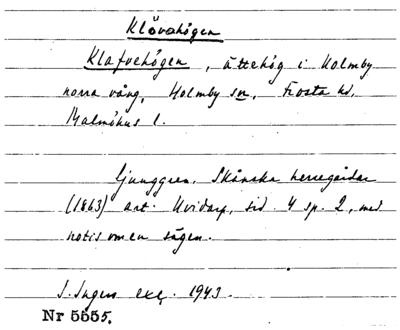 Klövahögen
Klafvehögen, ättehög i Holmby
norra vång, Holmby sn, Frosta hd,
Malmöhus l.
Ljunggren, Skånska herregårdar
(1863) art. Hvidarp, sid. 4 sp. 2, med
notis om en sägen.
I. Ingers exc. 1943.
Nr 5655.